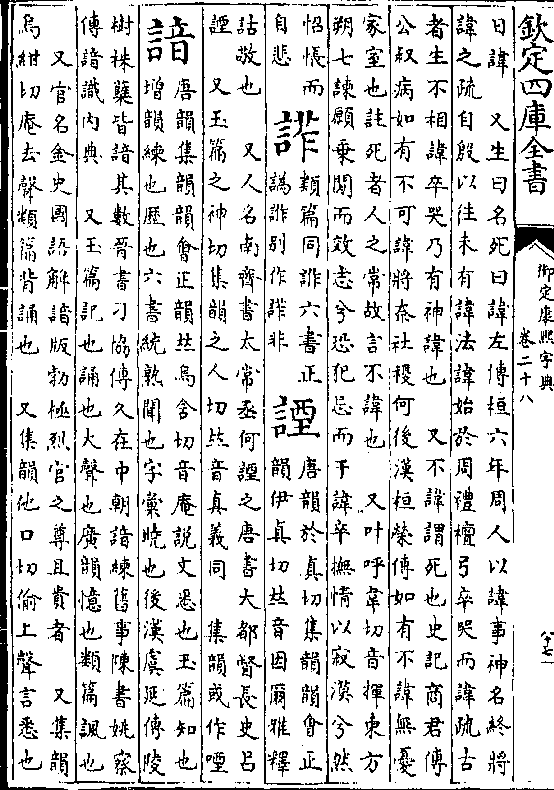 欽定四庫全書
御定康熙字典
卷二十八
日諱　又生曰名死曰諱左傳桓六年周人以諱事神名終將
諱之疏自殷以往未有諱法諱始於周禮檀弓卒哭而諱疏古
者生不相諱卒哭乃有神諱也　又不諱謂死也史記商君傳
公叔病如有不可諱將奈社稷何後漢桓榮傳如有不諱無憂
家室也註死者人之常故言不諱也　又叶呼韋切音揮東方
朔七諫願乗閒而效志兮恐犯忌而干諱卒撫情以寂漠兮然
怊悵而
自悲
䛫
類篇同詐六書正
譌詐别作䛫非
諲
唐韻於真切集韻韻會正
韻伊真切𠀤音因爾雅釋
詁敬也　又人名南齊書太常丞何諲之唐書大都督長史吕
諲　又玉篇之神切集韻之人切𠀤音真義同　集韻或作㖶
諳
唐韻集韻韻會正韻𠀤烏含切音庵説文悉也玉篇知也
增韻練也歴也六書統熟聞也字彙曉也後漢虞延傳陵
樹株蘖皆諳其數晉書刁協傳久在中朝諳練舊事陳書姚察
傳諳識内典　又玉篇記也誦也大聲也廣韻憶也類篇諷也
又官名金史國語解諳版勃極烈官之尊且貴者　又集韻
烏紺切庵去聲類篇背誦也　又集韻他口切偷上聲言悉也